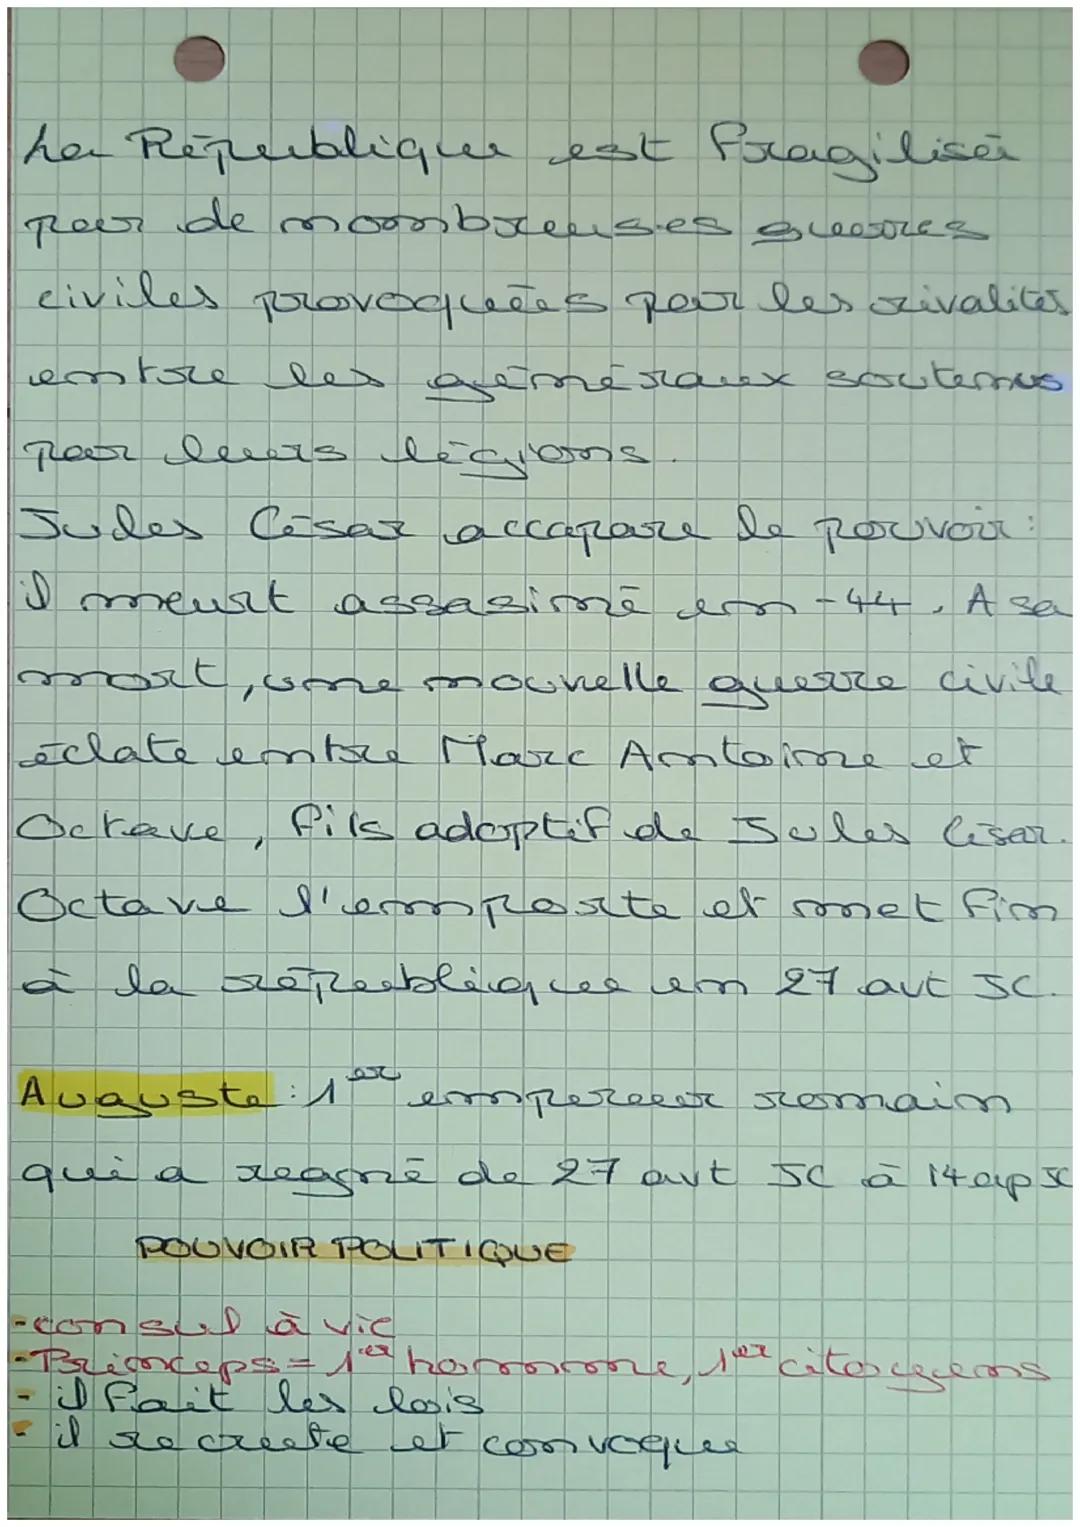 La République est fragilisé
par de nombreuses guerres
civiles provoquées par les rivalités
entre les généraux soutenus
par leurs légions.
Jules César accapare le pouvoir :
il meurt assasiné en -44. A sa
mort, une nouvelle guerre civile
éclate entre Marc Antoine et
Octave, fils adoptif de Jules César.
Octave l'emporte et met fin
à la république en 27 avt JC.
Auguste : 1er empereur romain
qui a regné de 27 avt JC à 14 ap JC
POUVOIR POLITIQUE
-consul à vie
-Princeps = 1er homme, 1er citoyens
- il fait les lois
- il recrute et convoque